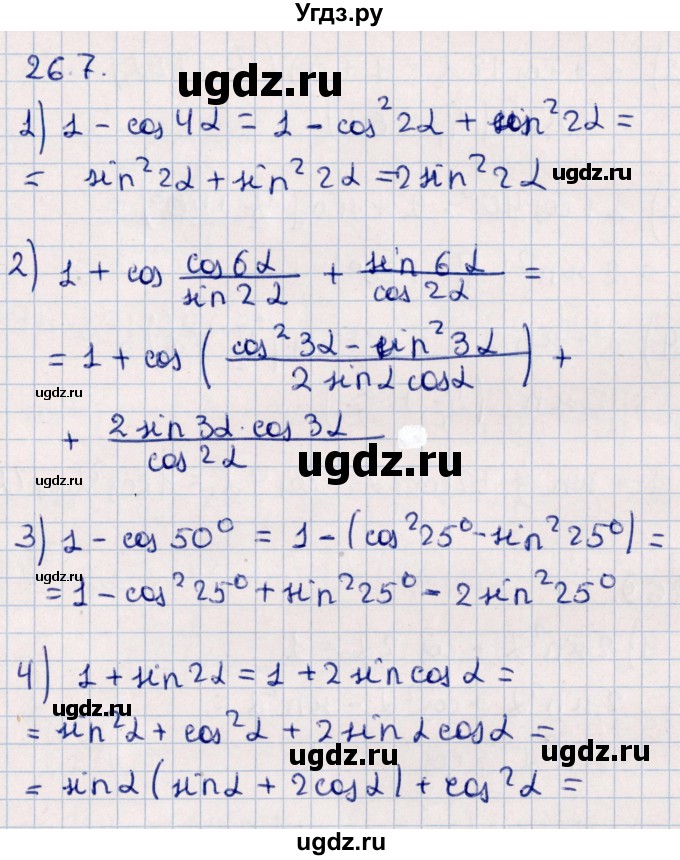 Угдз.ру
26.7.
ugdz.ru
1) 1 - cos 4α = 1 - cos² 2α + sin² 2α =
= sin² 2α + sin² 2α = 2 sin² 2α
ugdz.ru
2) 1 + cos cos 6α / sin 2α + sin 6α / cos 2α =
= 1 + cos ( cos² 3α - sin² 3α / 2 sin α cos α ) +
ugdz.ru
+ 2 sin 3α · cos 3α / cos 2α
ugdz.ru
ugdz.ru
3) 1 - cos 50° = 1 - (cos² 25° - sin² 25°) =
= 1 - cos² 25° + sin² 25° - 2 sin² 25°
ugdz.ru
4) 1 + sin 2α = 1 + 2 sin cos α =
ugdz.ru
= sin² α + cos² α + 2 sin α cos α =
ugdz.ru
= sin α (sin α + 2 cos α) + cos² α =
ugdz.ru
ugdz.ru